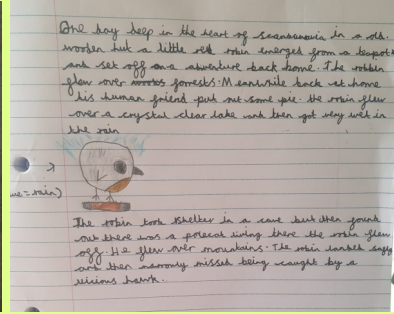 One day deep in the heart of Scandinavia in a old
wooden hut a little red robin emerged from a teapot
and set off on a adventure back home. The robbin
flew over forrests. Meanwhile back at home
his human friend put out some pie. the robin flew
over a crystal clear lake and then got very wet in
the rain
= rain)
The robin took shelter in a cave but then found
out there was a polecat living there the robin flew
off. He flew over mountains. The robin landed safly
and then narrowly missed being caught by a
vicious hawk.